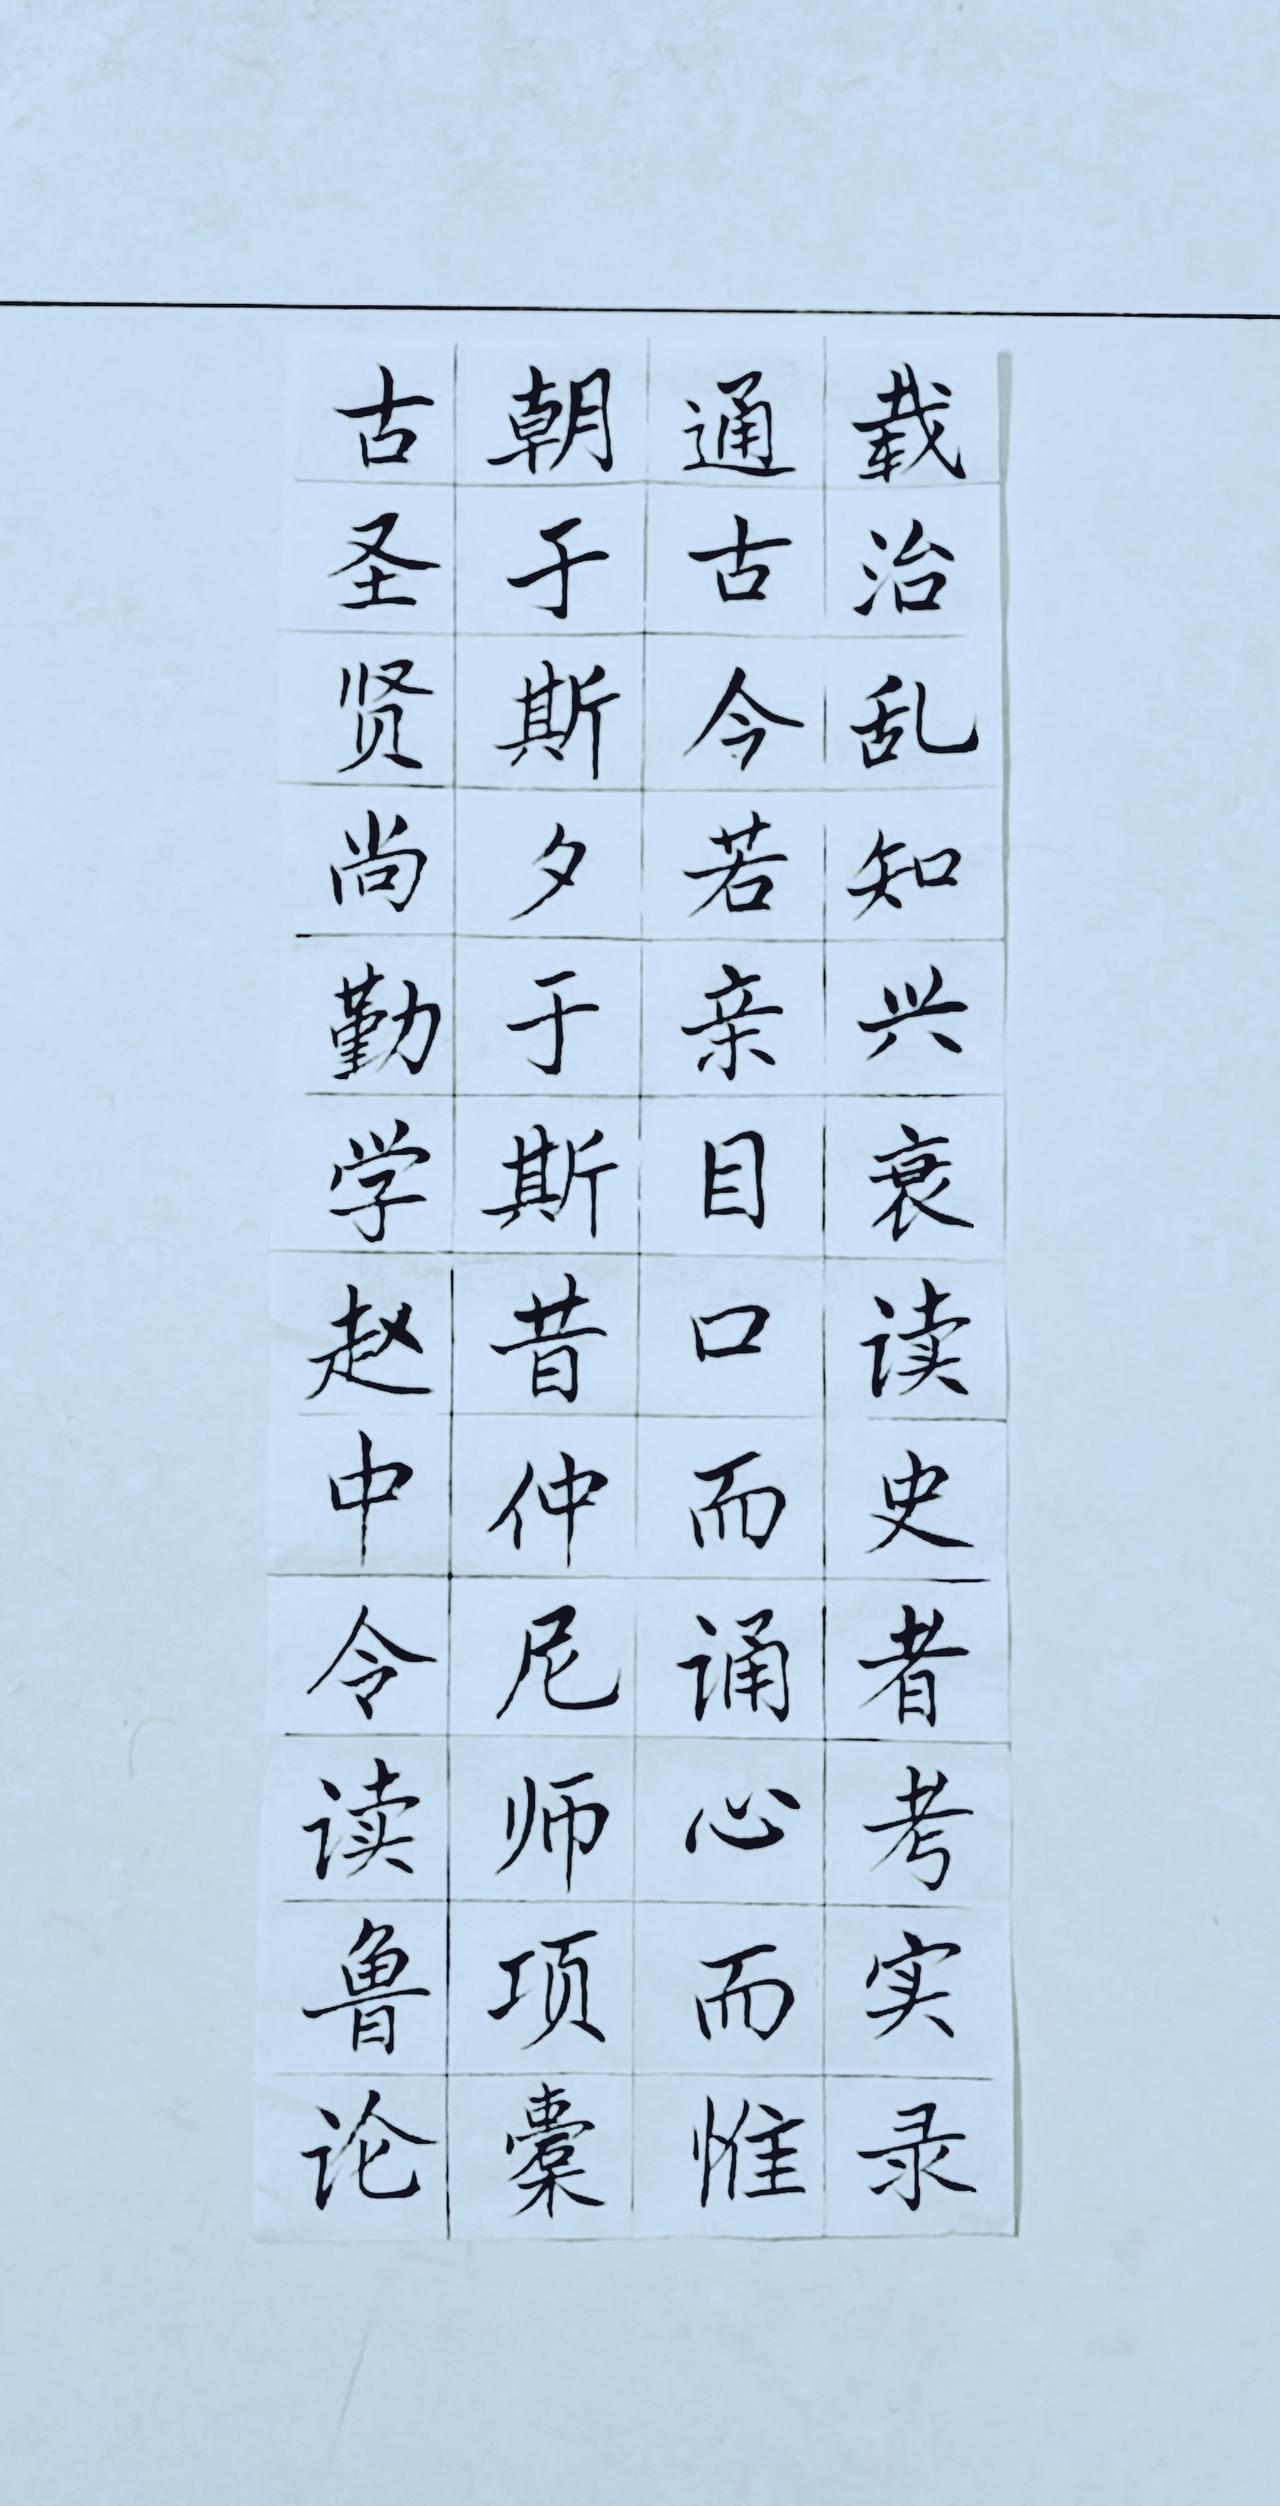 载治乱知兴衰读史者考实录
通古今若亲目口而诵心而惟
朝于斯夕于斯昔仲尼师项橐
古圣贤尚勤学赵中令读鲁论